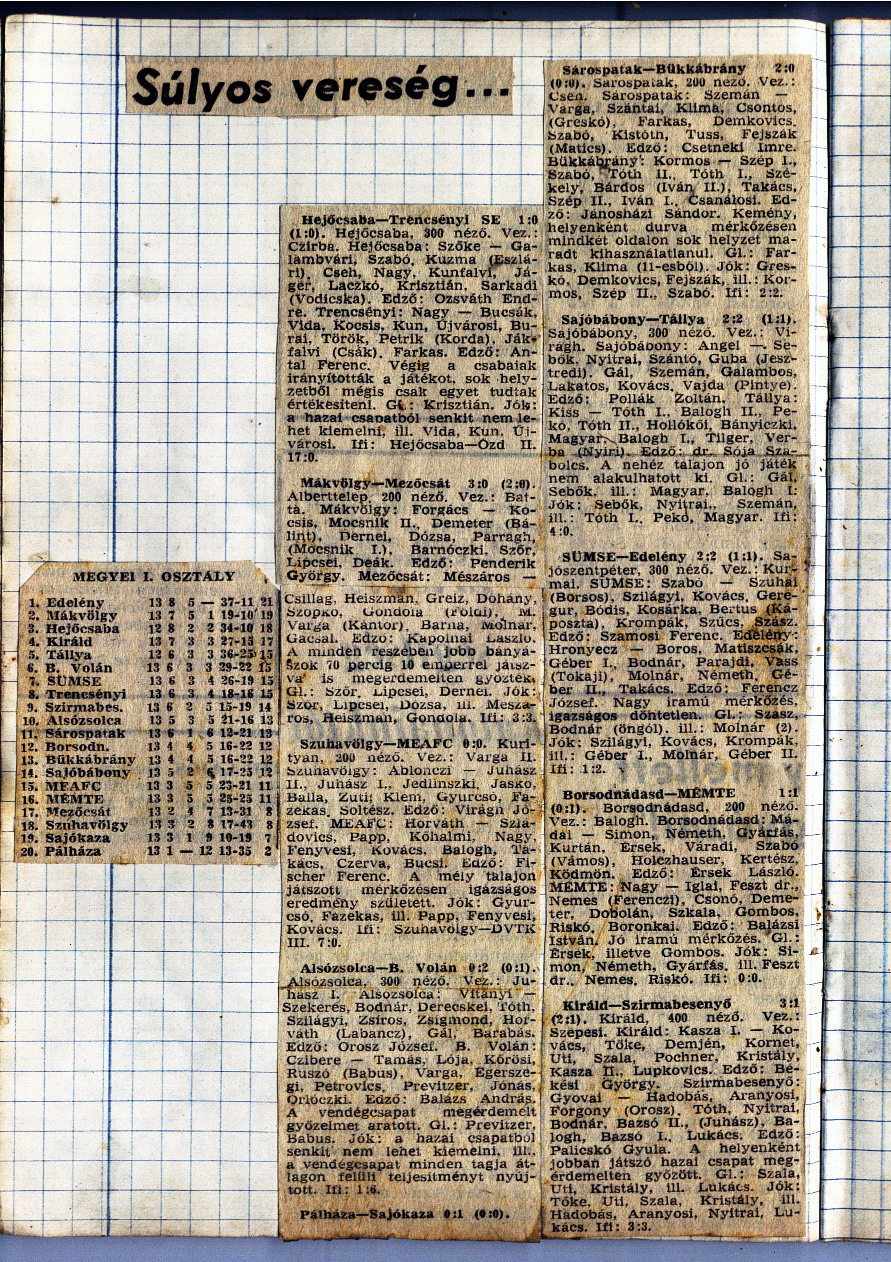 Súlyos vereség...
MEGYEI I. OSZTÁLY
1. Edelény 13 8 5 — 37-11 21
2. Mákvölgy 13 7 5 1 19-10 19
3. Hejőcsaba 12 8 2 2 34-10 18
4. Királd 13 7 3 3 27-15 17
5. Tállya 12 6 3 3 36-25 15
6. B. Volán 13 6 3 3 29-22 15
7. SÜMSE 13 6 3 4 26-19 15
8. Trencsényi 13 6 3 4 18-16 15
9. Szirmabes. 13 6 2 5 15-19 14
10. Alsózsolca 13 5 3 5 21-16 13
11. Sárospatak 13 6 1 6 12-21 13
12. Borsodn. 13 4 4 5 16-22 12
13. Bükkábrány 13 4 4 5 16-22 12
14. Sajóbábony 13 5 2 6 17-25 12
15. MEAFC 13 3 5 5 23-21 11
16. MÉMTE 13 3 5 5 25-25 11
17. Mezőcsát 13 2 4 7 13-31 8
18. Szuhavölgy 13 3 2 8 17-43 8
19. Sajókaza 13 3 1 9 10-19 7
20. Pálháza 13 1 — 12 13-35 2
Hejőcsaba—Trencsényi SE 1:0
(1:0). Hejőcsaba, 300 néző. Vez.:
Czirba. Hejőcsaba: Szőke — Ga-
lambvári, Szabó, Kuzma (Eszlá-
ri), Cseh, Nagy, Kunfalvi, Já-
ger, Laczkó, Krisztián, Sarkadi
(Vodicska). Edző: Ozsváth End-
re. Trencsényi: Nagy — Bucsák,
Vida, Kocsis, Kun, Újvárosi, Bu-
rai, Török, Petrik (Korda), Ják-
falvi (Csák), Farkas. Edző: An-
tal Ferenc. Végig a csabaiak
irányították a játékot, sok hely-
zetből mégis csak egyet tudtak
értékesíteni. Gl.: Krisztián. Jók:
a hazai csapatból senkit nem le-
het kiemelni, ill. Vida, Kun, Új-
városi. Ifi: Hejőcsaba—Ózd II.
17:0.
Mákvölgy—Mezőcsát 3:0 (2:0).
Alberttelep, 200 néző. Vez.: Bat-
ta. Mákvölgy: Forgács — Ko-
csis, Mocsnik II., Demeter (Bá-
lint), Dernei, Dózsa, Parragh,
(Mocsnik I.), Barnóczki, Szőr,
Lipcsei, Deák. Edző: Penderik
György. Mezőcsát: Mészáros —
Csillag, Heiszman, Greiz, Dohány,
Szopkó, Gondola (Földi), M.
Varga (Kántor), Barna, Molnár,
Gacsal. Edző: Kapolnai László.
A minden részében jobb bányá-
szok 70 percig 10 emberrel játsz-
va is megérdemelten győztek.
Gl.: Szőr, Lipcsei, Dernei. Jók:
Szőr, Lipcsei, Dózsa, ill. Mészá-
ros, Heiszman, Gondola. Ifi: 3:3.
Szuhavölgy—MEAFC 0:0. Kuri-
tyán, 200 néző. Vez.: Varga II.
Szuhavölgy: Ablonczi — Juhász
II., Juhász I., Jedlinszki, Jaskó,
Balla, Zuti, Klem, Gyurcsó, Fa-
zekas, Soltész. Edző: Virágh Jó-
zsef. MEAFC: Horváth — Szla-
dovics, Papp, Kőhalmi, Nagy,
Fenyvesi, Kovács, Balogh, Ta-
kács, Czerva, Bucsi. Edző: Fi-
scher Ferenc. A mély talajon
játszott mérkőzésen igazságos
eredmény született. Jók: Gyur-
csó, Fazekas, ill. Papp, Fenyvesi,
Kovács. Ifi: Szuhavölgy—DVTK
III. 7:0.
Alsózsolca—B. Volán 0:2 (0:1).
Alsózsolca, 300 néző. Vez.: Ju-
hász I. Alsózsolca: Vitányi —
Szekeres, Bodnár, Derecskei, Tóth,
Szilágyi, Zsíros, Zsigmond, Hor-
váth (Labancz), Gál, Barabás.
Edző: Orosz József. B. Volán:
Czibere — Tamás, Lója, Kőrösi,
Ruszó (Babus), Varga, Egersze-
gi, Petrovics, Previtzer, Jónás,
Orlóczki. Edző: Balázs András.
A vendégcsapat megérdemelt
győzelmet aratott. Gl.: Previtzer,
Babus. Jók: a hazai csapatból
senkit nem lehet kiemelni, ill.
a vendégcsapat minden tagja át-
lagon felüli teljesítményt nyúj-
tott. Ifi: 1:6.
Pálháza—Sajókaza 0:1 (0:0).
Sárospatak—Bükkábrány 2:0
(0:0). Sárospatak, 200 néző. Vez.:
Csen. Sárospatak: Szemán —
Varga, Szántai, Klima, Csontos,
(Greskó), Farkas, Demkovics,
Szabó, Kistóth, Tuss, Fejszák
(Matics). Edző: Csetneki Imre.
Bükkábrány: Kormos — Szép I.,
Szabó, Tóth II., Tóth I., Szé-
kely, Bárdos (Iván II.), Takács,
Szép II., Iván I., Csanálosi. Ed-
ző: Jánosházi Sándor. Kemény,
helyenként durva mérkőzésen
mindkét oldalon sok helyzet ma-
radt kihasználatlanul. Gl.: Far-
kas, Klima (11-esből). Jók: Gres-
kó, Demkovics, Fejszák, ill.: Kor-
mos, Szép II., Szabó. Ifi: 2:2.
Sajóbábony—Tállya 2:2 (1:1).
Sajóbábony, 300 néző. Vez.: Vi-
rágh. Sajóbábony: Angel — Se-
bők, Nyitrai, Szántó, Guba (Jesz-
tredi), Gál, Szemán, Galambos,
Lakatos, Kovács, Vajda (Pintye).
Edző: Pollák Zoltán. Tállya:
Kiss — Tóth I., Balogh II., Pe-
kó, Tóth II., Hollókői, Bányiczki,
Magyar, Balogh I., Tilger, Ver-
ba (Nyiri). Edző: dr. Sója Sza-
bolcs. A nehéz talajon jó játék
nem alakulhatott ki. Gl.: Gál,
Sebők, ill.: Magyar, Balogh I.
Jók: Sebők, Nyitrai, Szemán,
ill.: Tóth I., Pekó, Magyar. Ifi:
4:0.
SÜMSE—Edelény 2:2 (1:1). Sa-
jószentpéter, 300 néző. Vez.: Kur-
mai. SÜMSE: Szabó — Szuhai
(Borsos), Szilágyi, Kovács, Gere-
gur, Bódis, Kosárka, Bertus (Ká-
poszta), Krompák, Szűcs, Szász.
Edző: Szamosi Ferenc. Edelény:
Hronyecz — Boros, Matiszcsák,
Géber I., Bodnár, Parajdi, Vass
(Tokaji), Molnár, Németh, Gé-
ber II., Takács. Edző: Ferencz
József. Nagy iramú mérkőzés,
igazságos döntetlen. Gl.: Szász,
Bodnár (öngól), ill.: Molnár (2).
Jók: Szilágyi, Kovács, Krompák,
ill.: Géber I., Molnár, Géber II.
Ifi: 1:2.
Borsodnádasd—MÉMTE 1:1
(0:1). Borsodnádasd, 200 néző.
Vez.: Balogh. Borsodnádasd: Má-
dai — Simon, Németh, Gyárfás,
Kurtán, Érsek, Váradi, Szabó
(Vámos), Holczhauser, Kertész,
Ködmön. Edző: Érsek László.
MÉMTE: Nagy — Iglai, Feszt dr.,
Nemes (Ferenczi), Csonó, Deme-
ter, Dobolán, Szkala, Gombos,
Riskó, Boronkai. Edző: Balázsi
István. Jó iramú mérkőzés. Gl.:
Érsek, illetve Gombos. Jók: Si-
mon, Németh, Gyárfás, ill. Feszt
dr., Nemes, Riskó. Ifi: 0:0.
Királd—Szirmabesenyő 3:1
(2:1). Királd, 400 néző. Vez.:
Szepesi. Királd: Kasza I. — Ko-
vács, Tőke, Demjén, Kornet,
Uti, Szala, Pochner, Kristály,
Kasza II., Lupkovics. Edző: Bé-
kési György. Szirmabesenyő:
Gyovai — Hadobás, Aranyosi,
Forgony (Orosz), Tóth, Nyitrai,
Bodnár, Bazsó II., (Juhász), Ba-
logh, Bazsó I., Lukács. Edző:
Palicskó Gyula. A helyenként
jobban játszó hazai csapat meg-
érdemelten győzött. Gl.: Szala,
Uti, Kristály, ill. Lukács. Jók:
Tőke, Uti, Szala, Kristály, ill.
Hadobás, Aranyosi, Nyitrai, Lu-
kács. Ifi: 3:3.